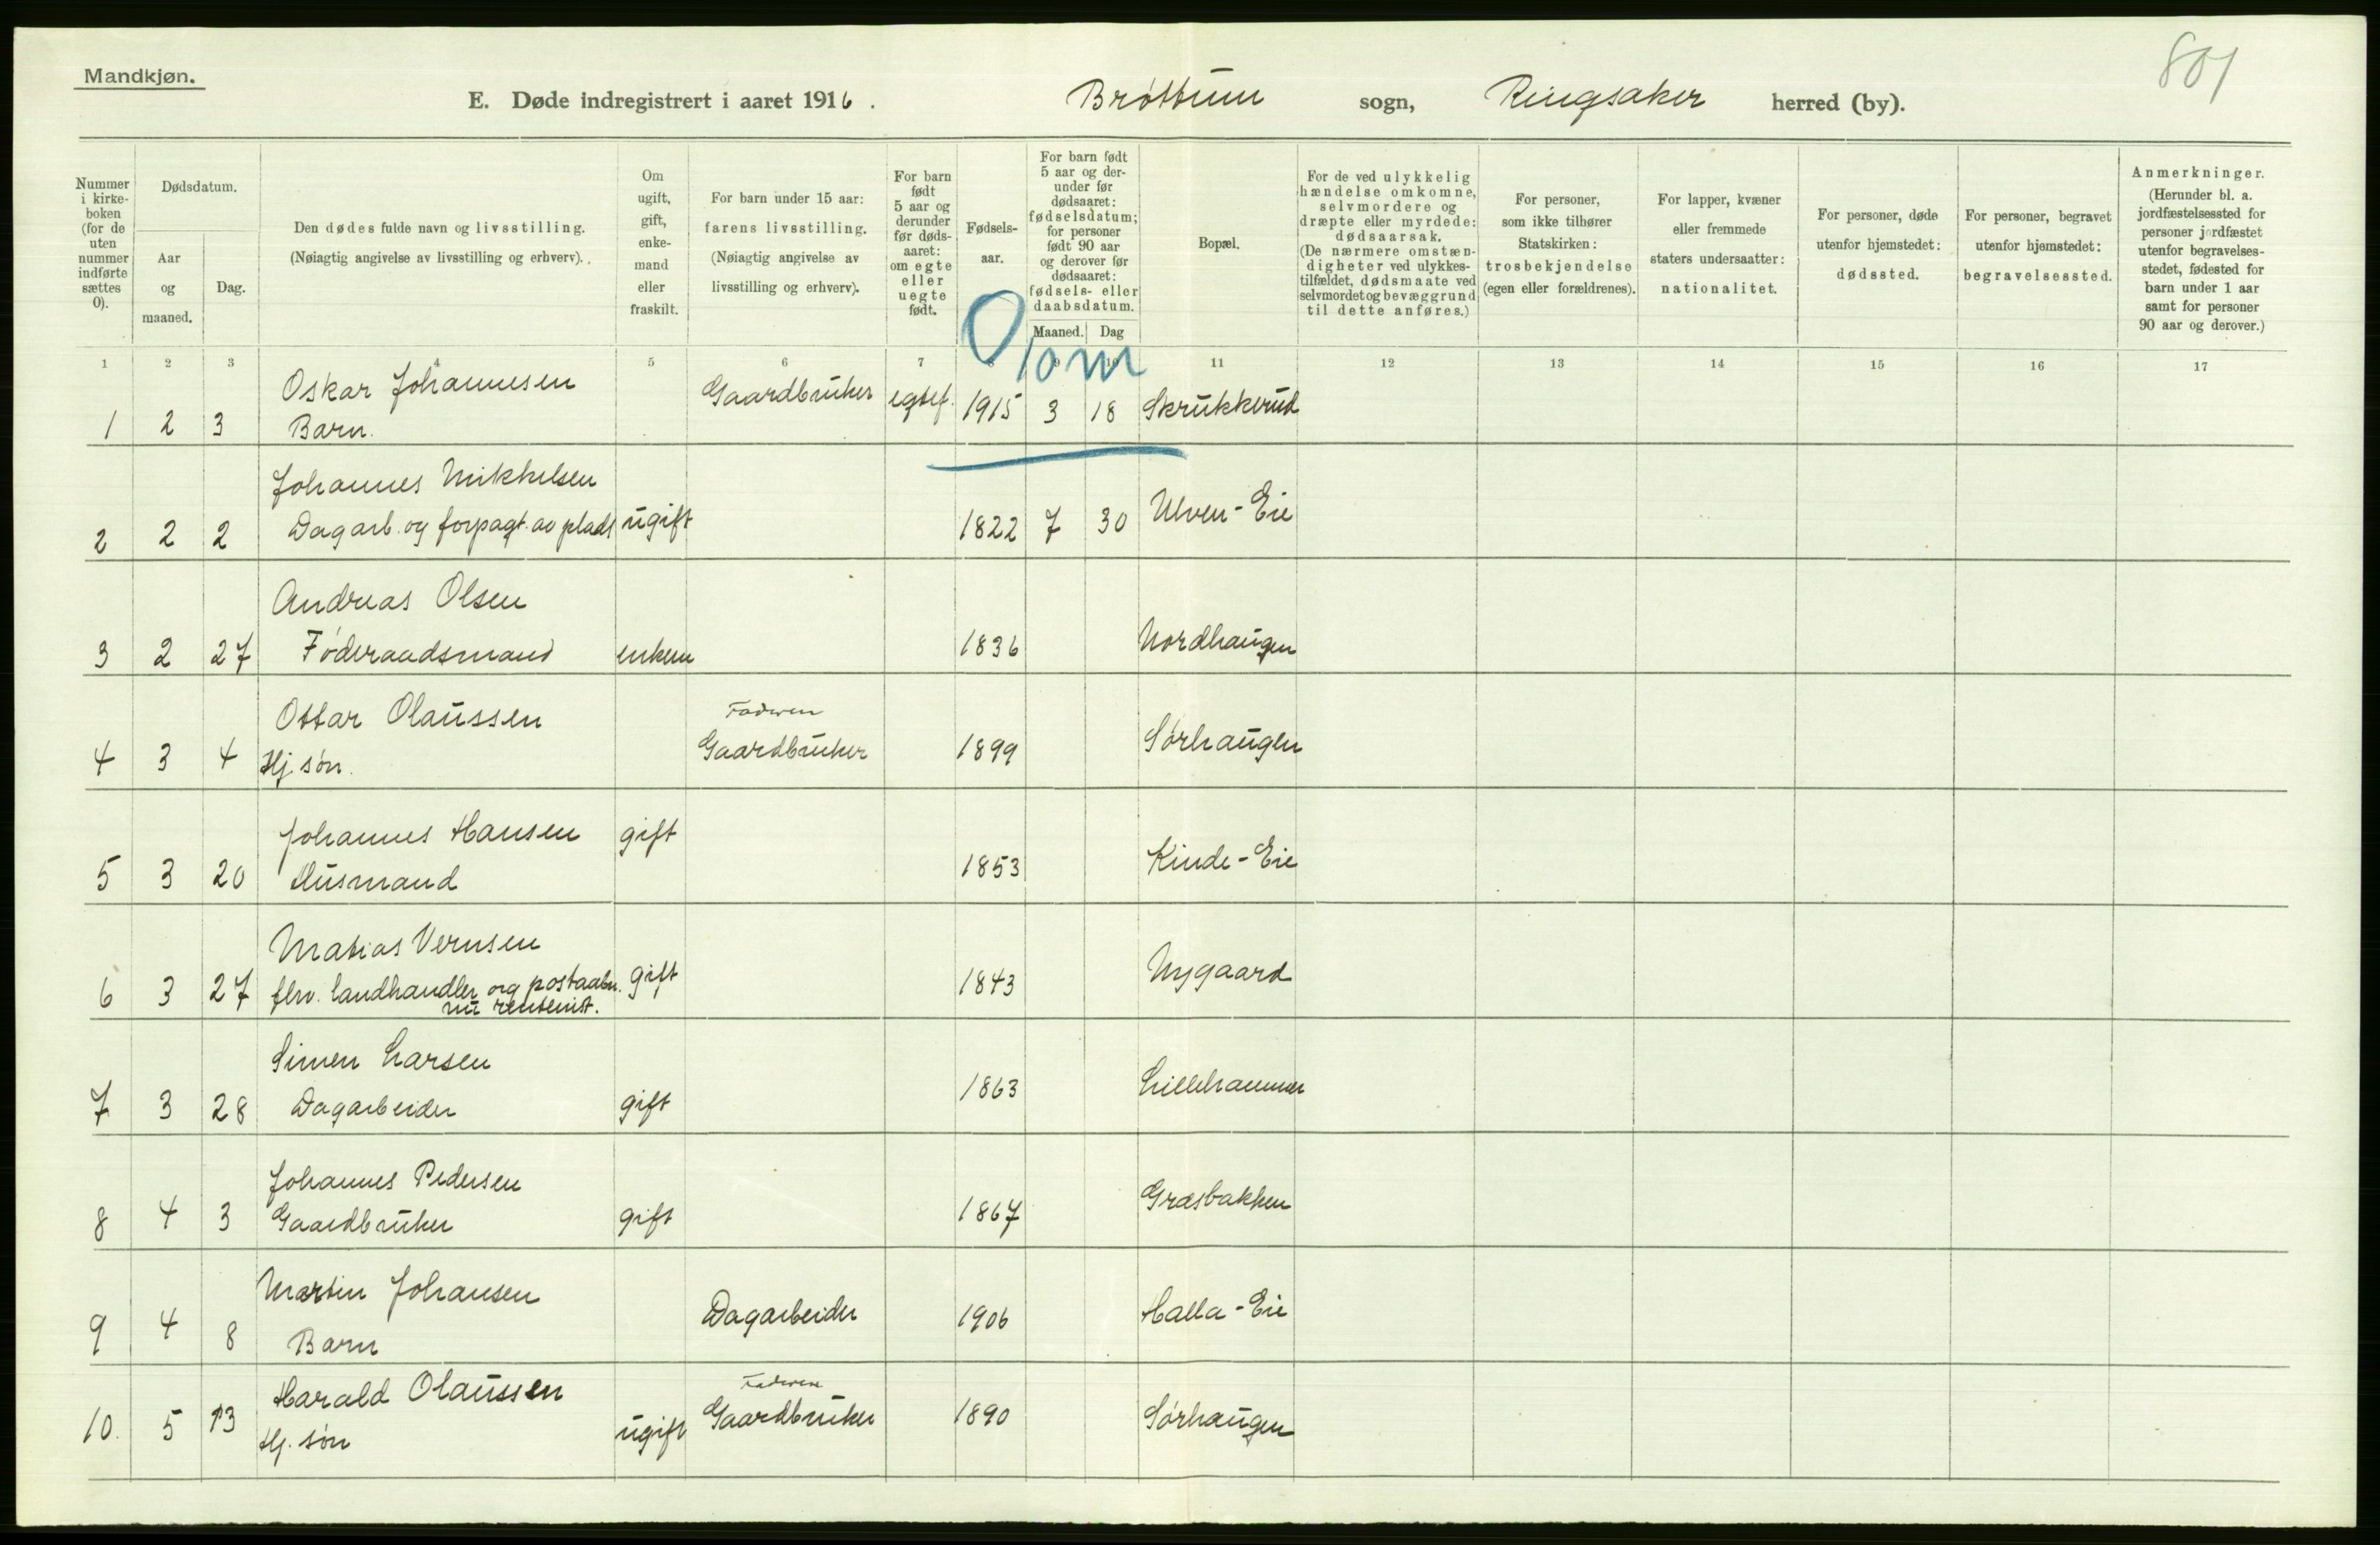 Mandkjøn.
801
E. Døde indregistrert i aaret 1916. Brøttum sogn, Ringsaker herred (by).
Nummer i kirke-boken (for de uten nummer indførte sættes 0).
Dødsdatum.
Aar og maaned.
Dag.
Den dødes fulde navn og livsstilling.
(Nøiagtig angivelse av livsstilling og erhverv).
Om ugift, gift, enke-mand eller fraskilt.
For barn under 15 aar: farens livsstilling. (Nøiagtig angivelse av livsstilling og erhverv).
For barn født 5 aar og derunder før døds-aaret: om egte eller uegte født.
Fødsels-aar.
For barn født 5 aar og der-under før dødsaaret: fødselsdatum; for personer født 90 aar og derover før dødsaaret: fødsels- eller daabsdatum.
Maaned. Dag
Bopæl.
For de ved ulykkelig hændelse omkomne, selvmordere og dræpte eller myrdede: dødsaarsak. (De nærmere omstæn-digheter ved ulykkes-tilfældet, dødsmaate ved selvmordet og bevæggrund til dette anføres.)
For personer, som ikke tilhører Statskirken: trosbekjendelse (egen eller forældrenes).
For lapper, kvæner eller fremmede staters undersaatter: nationalitet.
For personer, døde utenfor hjemstedet: dødssted.
For personer, begravet utenfor hjemstedet: begravelsessted.
Anmerkninger. (Herunder bl. a. jordfæstelsessted for personer jordfæstet utenfor begravelses-stedet, fødested for barn under 1 aar samt for personer 90 aar og derover.)
1 2 3 4 5 6 7 8 9 10 11 12 13 14 15 16 17
0 10 m
Oskar Johannesen
1 2 3 Barn. Gaardbruker egtef. 1915 3 18 Skrukkerud
Johannes Mikkelsen
2 2 2 Dagarb. og forpagt. av plads ugift 1822 7 30 Ulven-Eie
Andreas Olsen
3 2 27 Føderaadsmand enkem 1836 Nordhaugen
Ottar Olaussen Faderen
4 3 4 Hj. søn. Gaardbruker 1899 Sørhaugen
Johannes Hansen gift
5 3 20 Husmand 1853 Kinde-Eie
Matias Vernsen
6 3 27 flrv. landhandler og postaabn. gift 1843 Nygaard
nu rentenist.
Simen Larsen
7 3 28 Dagarbeider gift 1863 Lillehammer
Johannes Pedersen
8 4 3 Gaardbruker gift 1867 Græsbakken
Martin Johansen
9 4 8 Barn Dagarbeider 1906 Halla-Eie
Harald Olaussen Faderen
10. 5 13 Hj. søn ugift Gaardbruker 1890 Sørhaugen